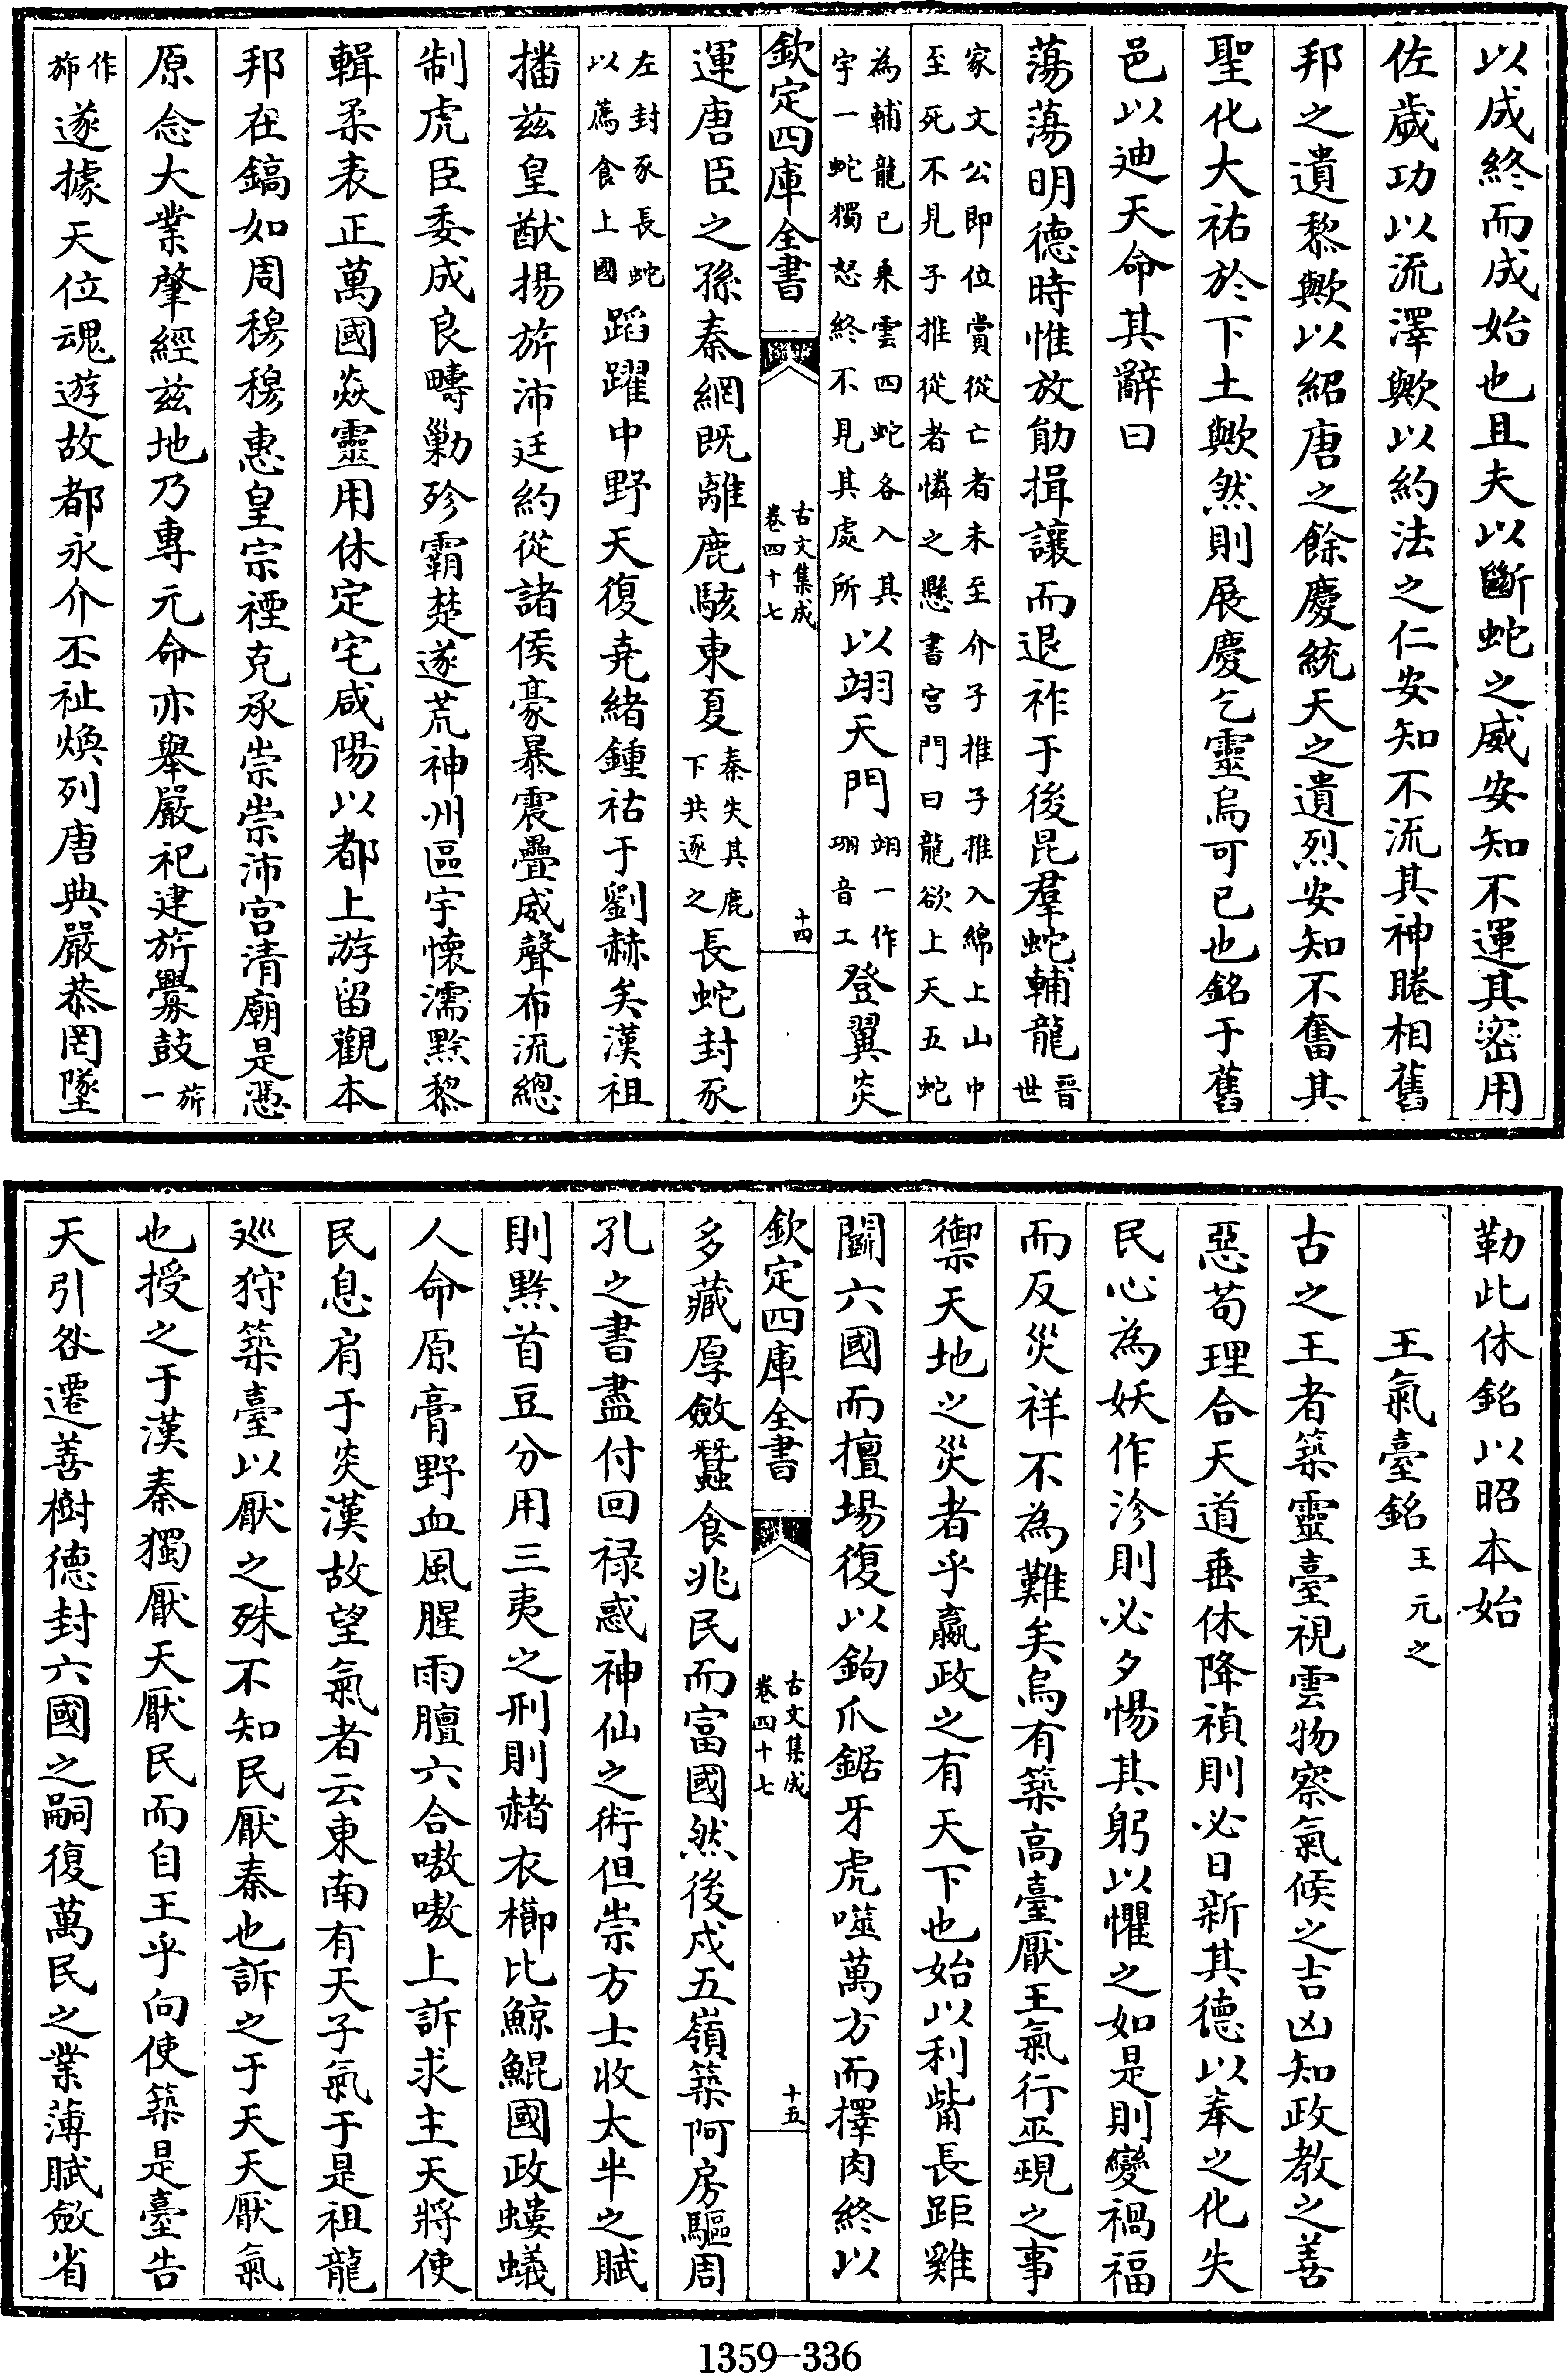 以成終而成始也且夫以斷蛇之威安知不運其密用
佐歲功以流澤歟以約法之仁安知不流其神睠相舊
邦之遺黎歟以紹唐之餘慶統天之遺烈安知不奮其
聖化大祐於下土歟然則展慶乞靈烏可已也銘于舊
邑以迪天命其辭曰
蕩蕩明德時惟放勛揖讓而退祚于後昆羣蛇輔龍晉世
家文公即位賞從亡者未至介子推子推入綿上山中
至死不見子推從者憐之懸書宫門曰龍欲上天五蛇
為輔龍已乗雲四蛇各入其
宇一蛇獨怒終不見其處所以翊天門翊一作珝音工登翼炎
欽定四庫全書
古文集成
卷四十七
十四
運唐臣之孫秦網既離鹿駭東夏秦失其鹿下共逐之長蛇封豕
左封豕長蛇以薦食上國蹈躍中野天復堯緒鍾祜于劉赫矣漢祖
播兹皇猷揚旂沛廷約從諸侯豪暴震疊威聲布流總
制虎臣委成良疇勦殄霸楚遂荒神州區宇懷濡黔黎
輯柔表正萬國焱靈用休定宅咸陽以都上游留觀本
邦在鎬如周穆穆惠皇宗禋克承崇崇沛宫清廟是憑
原念大業肇經兹地乃專元命亦舉嚴祀建旂釁鼓旂一
作斾遂據天位魂遊故都永介丕祉煥列唐典嚴恭罔墜
勒此休銘以昭本始
王氣臺銘 王元之
古之王者築靈臺視雲物察氣候之吉凶知政教之善
惡苟理合天道垂休降禎則必日新其德以奉之化失
民心為妖作沴則必夕惕其躬以懼之如是則變禍福
而反災祥不為難矣烏有築高臺厭王氣行巫覡之事
禦天地之災者乎嬴政之有天下也始以利觜長距雞
鬬六國而擅場復以鉤爪鋸牙虎噬萬方而擇肉終以
欽定四庫全書
古文集成
卷四十七
十五
多藏厚斂蠶食兆民而富國然後戍五嶺築阿房驅周
孔之書盡付回禄惑神仙之術但崇方士收太半之賦
則黔首豆分用三夷之刑則赭衣櫛比鯨鯤國政螻蟻
人命原膏野血風腥雨膻六合嗷嗷上訴求主天將使
民息肩于炎漢故望氣者云東南有天子氣于是祖龍
巡狩築臺以厭之殊不知民厭秦也訴之于天天厭氣
也授之于漢秦獨厭天厭民而自王乎向使築是臺告
天引咎遷善樹德封六國之嗣復萬民之業薄賦斂省
1359-336